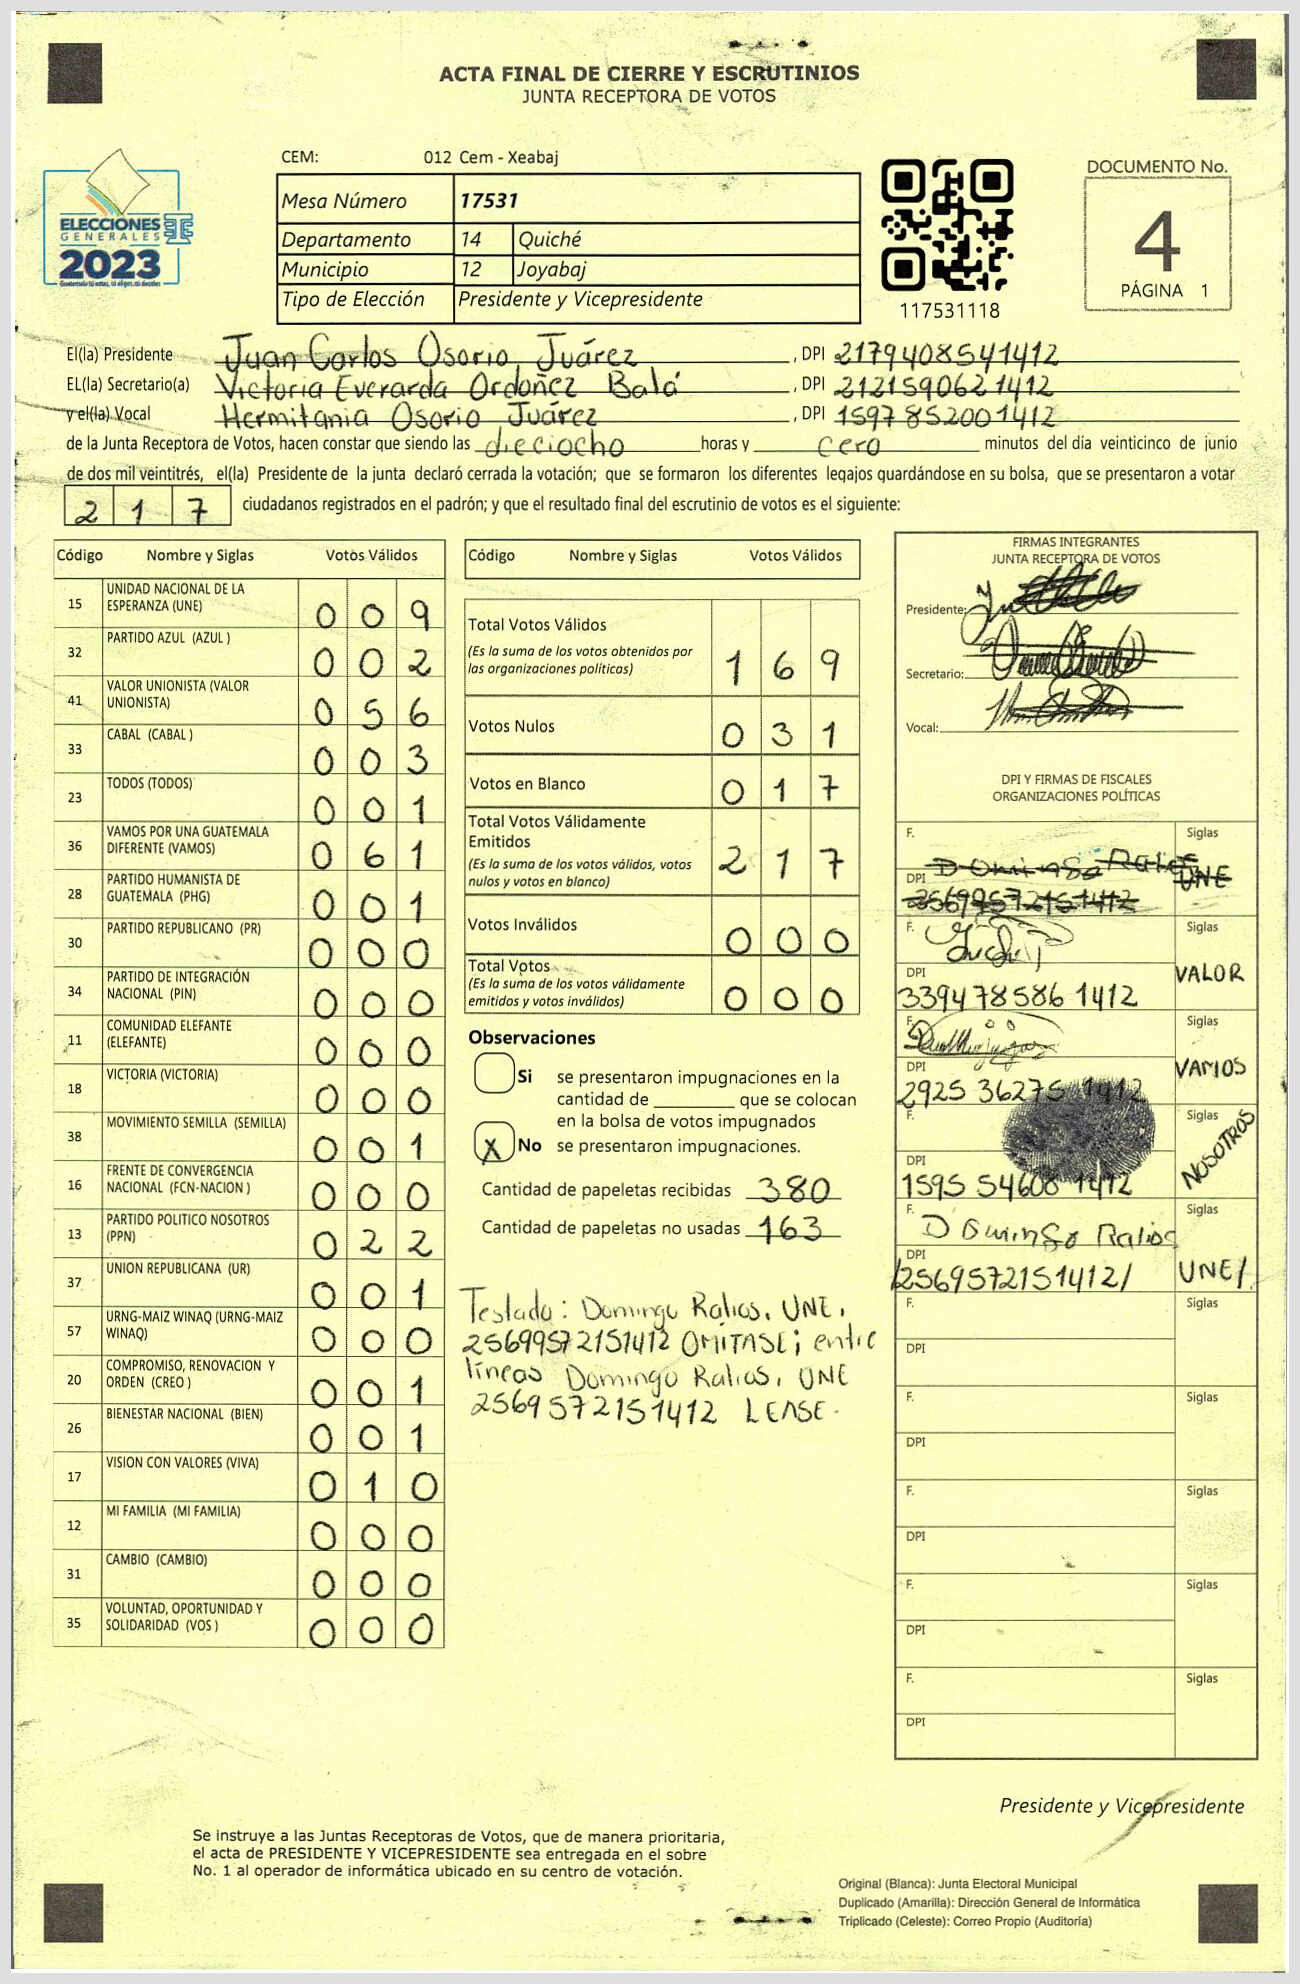 ACTA FINAL DE CIERRE Y ESCRUTINIOS
JUNTA RECEPTORA DE VOTOS
CEM: 012 Cem - Xeabaj
Mesa Número 17531
Departamento 14 Quiché
Municipio 12 Joyabaj
Tipo de Elección Presidente y Vicepresidente
ELECCIONES
GENERALES
2023
117531118
DOCUMENTO No.
4
PÁGINA 1
El(la) Presidente Juan Carlos Osorio Juárez, DPI 2179408541412
EL(la) Secretario(a) Victoria Everarda Ordoñez Balá, DPI 2121590621412
y el(la) Vocal Hermitania Osorio Juárez, DPI 1597852001412
de la Junta Receptora de Votos, hacen constar que siendo las dieciocho horas y cero minutos del día veinticinco de junio
de dos mil veintitrés, el(la) Presidente de la junta declaró cerrada la votación; que se formaron los diferentes legajos guardándose en su bolsa, que se presentaron a votar
217 ciudadanos registrados en el padrón; y que el resultado final del escrutinio de votos es el siguiente:
Código Nombre y Siglas Votos Válidos
15 UNIDAD NACIONAL DE LA ESPERANZA (UNE) 009
32 PARTIDO AZUL (AZUL ) 002
41 VALOR UNIONISTA (VALOR UNIONISTA) 056
33 CABAL (CABAL ) 003
23 TODOS (TODOS) 001
36 VAMOS POR UNA GUATEMALA DIFERENTE (VAMOS) 061
28 PARTIDO HUMANISTA DE GUATEMALA (PHG) 001
30 PARTIDO REPUBLICANO (PR) 000
34 PARTIDO DE INTEGRACIÓN NACIONAL (PIN) 000
11 COMUNIDAD ELEFANTE (ELEFANTE) 000
18 VICTORIA (VICTORIA) 000
38 MOVIMIENTO SEMILLA (SEMILLA) 001
16 FRENTE DE CONVERGENCIA NACIONAL (FCN-NACION ) 000
13 PARTIDO POLITICO NOSOTROS (PPN) 022
37 UNION REPUBLICANA (UR) 001
57 URNG-MAIZ WINAQ (URNG-MAIZ WINAQ) 000
20 COMPROMISO, RENOVACION Y ORDEN (CREO ) 001
26 BIENESTAR NACIONAL (BIEN) 001
17 VISION CON VALORES (VIVA) 010
12 MI FAMILIA (MI FAMILIA) 000
31 CAMBIO (CAMBIO) 000
35 VOLUNTAD, OPORTUNIDAD Y SOLIDARIDAD (VOS ) 000
Código Nombre y Siglas Votos Válidos
Total Votos Válidos
(Es la suma de los votos obtenidos por
las organizaciones políticas) 169
Votos Nulos 031
Votos en Blanco 017
Total Votos Válidamente
Emitidos
(Es la suma de los votos válidos, votos
nulos y votos en blanco) 217
Votos Inválidos 000
Total Votos
(Es la suma de los votos válidamente
emitidos y votos inválidos) 000
Observaciones
Si se presentaron impugnaciones en la
cantidad de ________ que se colocan
en la bolsa de votos impugnados
X No se presentaron impugnaciones.
Cantidad de papeletas recibidas 380
Cantidad de papeletas no usadas 163
Testado: Domingo Ralios, UNE,
25699572151412 OMÍTASE; entre
líneas Domingo Ralios, UNE
2569572151412 LEASE.
FIRMAS INTEGRANTES
JUNTA RECEPTORA DE VOTOS
Presidente:
Secretario:
Vocal:
DPI Y FIRMAS DE FISCALES
ORGANIZACIONES POLÍTICAS
F. Domingo Ralios Siglas
DPI UNE
F. Siglas
DPI VALOR
3394785861412
F. Siglas
DPI VAMOS
2925362751412
F. Siglas
DPI NOSOTROS
1595546081412
F. Domingo Ralios Siglas
DPI
/2569572151412/ UNE/.
F. Siglas
DPI
F. Siglas
DPI
F. Siglas
DPI
F. Siglas
DPI
F. Siglas
DPI
Presidente y Vicepresidente
Se instruye a las Juntas Receptoras de Votos, que de manera prioritaria,
el acta de PRESIDENTE Y VICEPRESIDENTE sea entregada en el sobre
No. 1 al operador de informática ubicado en su centro de votación.
Original (Blanca): Junta Electoral Municipal
Duplicado (Amarilla): Dirección General de Informática
Triplicado (Celeste): Correo Propio (Auditoría)